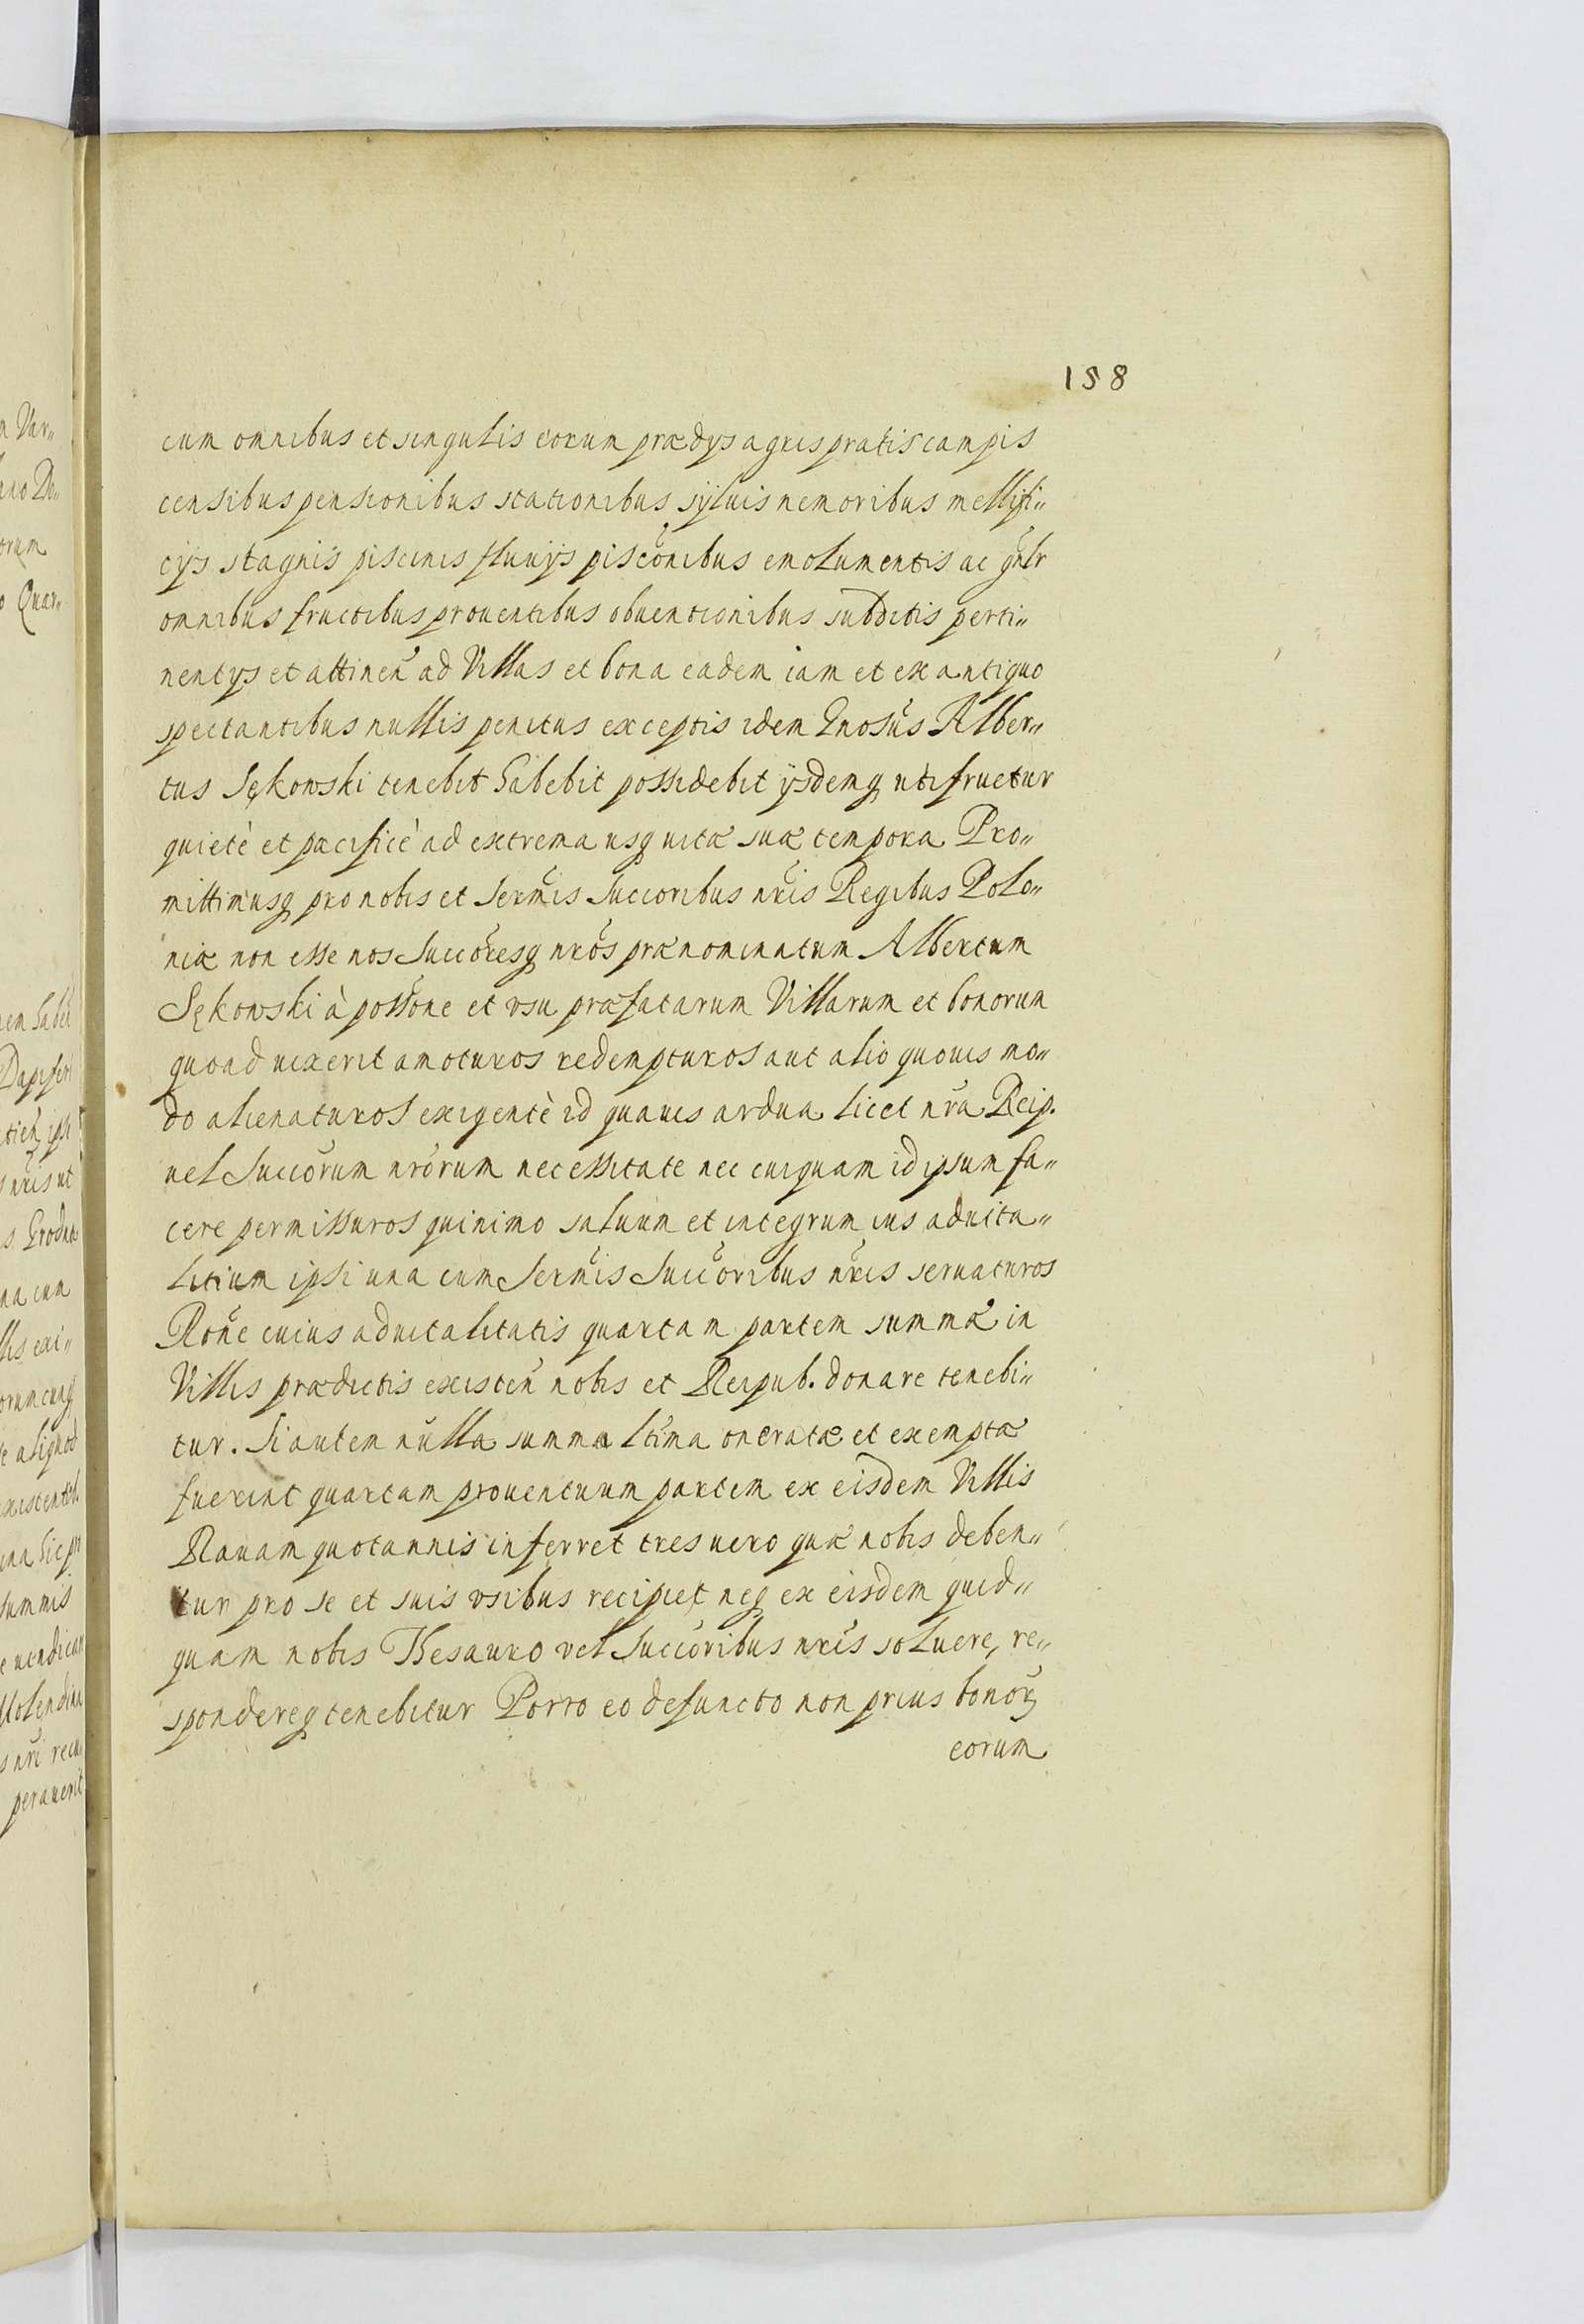 158
cum omnibus et singulis eorum prædys agris pratis campis
censibus pensionibus stationibus syluis nemoribus mellifi„
cijs stagnis piscinis fluuijs piscõnibus emolumentis ac gñlr
omnibus fructibus prouentibus obuentionibus subditis perti„
nentys et attineñ ad Villas et bona eadem iam et ex antiquo
spectantibus nullis penitus exceptis idem Gnosus Alber„
tus Sękowski tenebit habebit possidebit ijsdemq utifruetur
quietè et pacificè ad extrema usq uitæ suæ tempora Pro„
mittimusq pro nobis et Sermis Succoribus nris Regibus Polo„
niæ non esse nos Succoresq nros prænominatum Albertum
Sękowski à possone et vsu præfatarum Villarum et bonorum
quoad uixerit amoturos redempturos aut alio quouis mo„
do alienaturos exigentè id quauis ardua licet nra Reip.
uel Succorum nrorum necessitate nec cuiquam id ipsum fa„
cere permissuros quinimo saluum et integrum ius aduita„
litium ipsi una cum Sermis Succoribus nris seruaturos
Rone cuius aduitalitatis quartam partem summæ in
Villis prædictis existeñ nobis et Reipub. donare tenebi„
tur. Si autem nulla summa ltima oneratæ et exemptæ
fuerint quartam prouentuum partem ex eisdem Villis
Rauam quotannis inferret tres uero quæ nobis deben„
tur pro se et suis vsibus recipiet neq ex eisdem quid„
quam nobis Thesauro vel Succoribus nris soluere, re„
spondereq tenebitur Porro eo defuncto non prius bonoꝝ
eorum